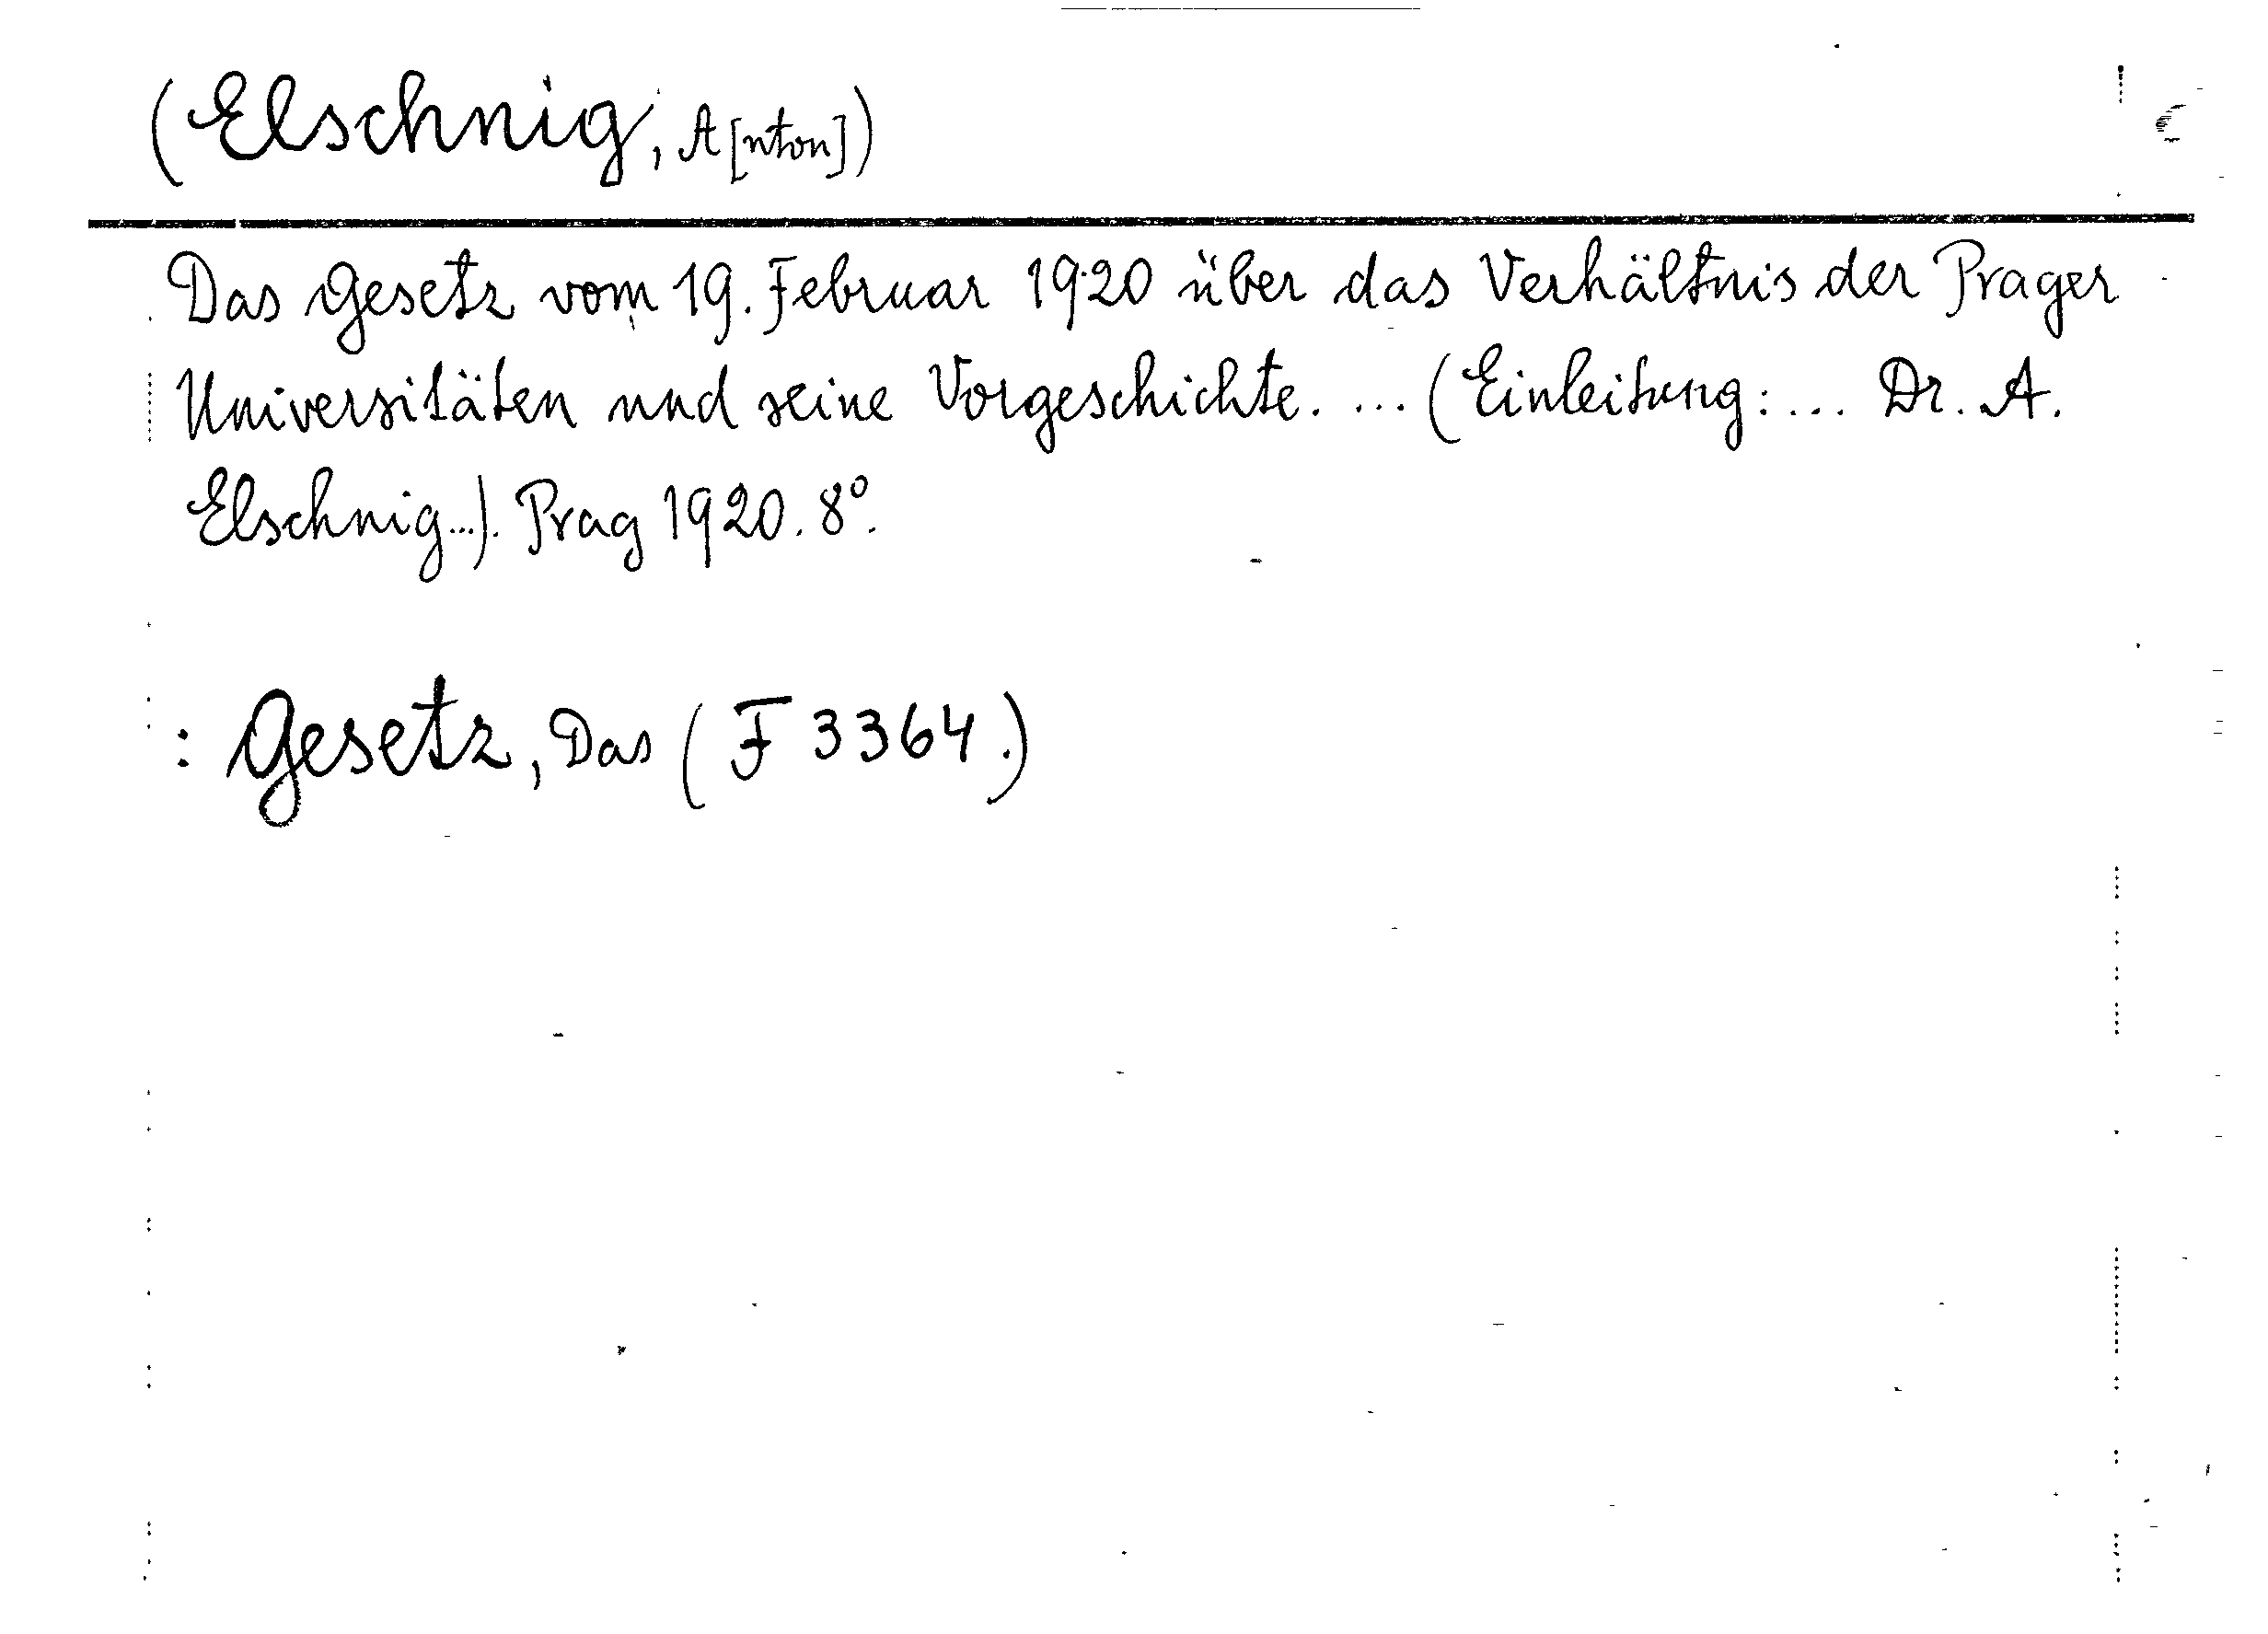 (Elschnig, A[nton])
Das Gesetz vom 19. Februar 1920 über das Verhältnis der Prager
Universitäten und seine Vorgeschichte. ... (Einleitung: ... Dr. A.
Elschnig...). Prag 1920. 8°.
: Gesetz, Das (F 3364.)